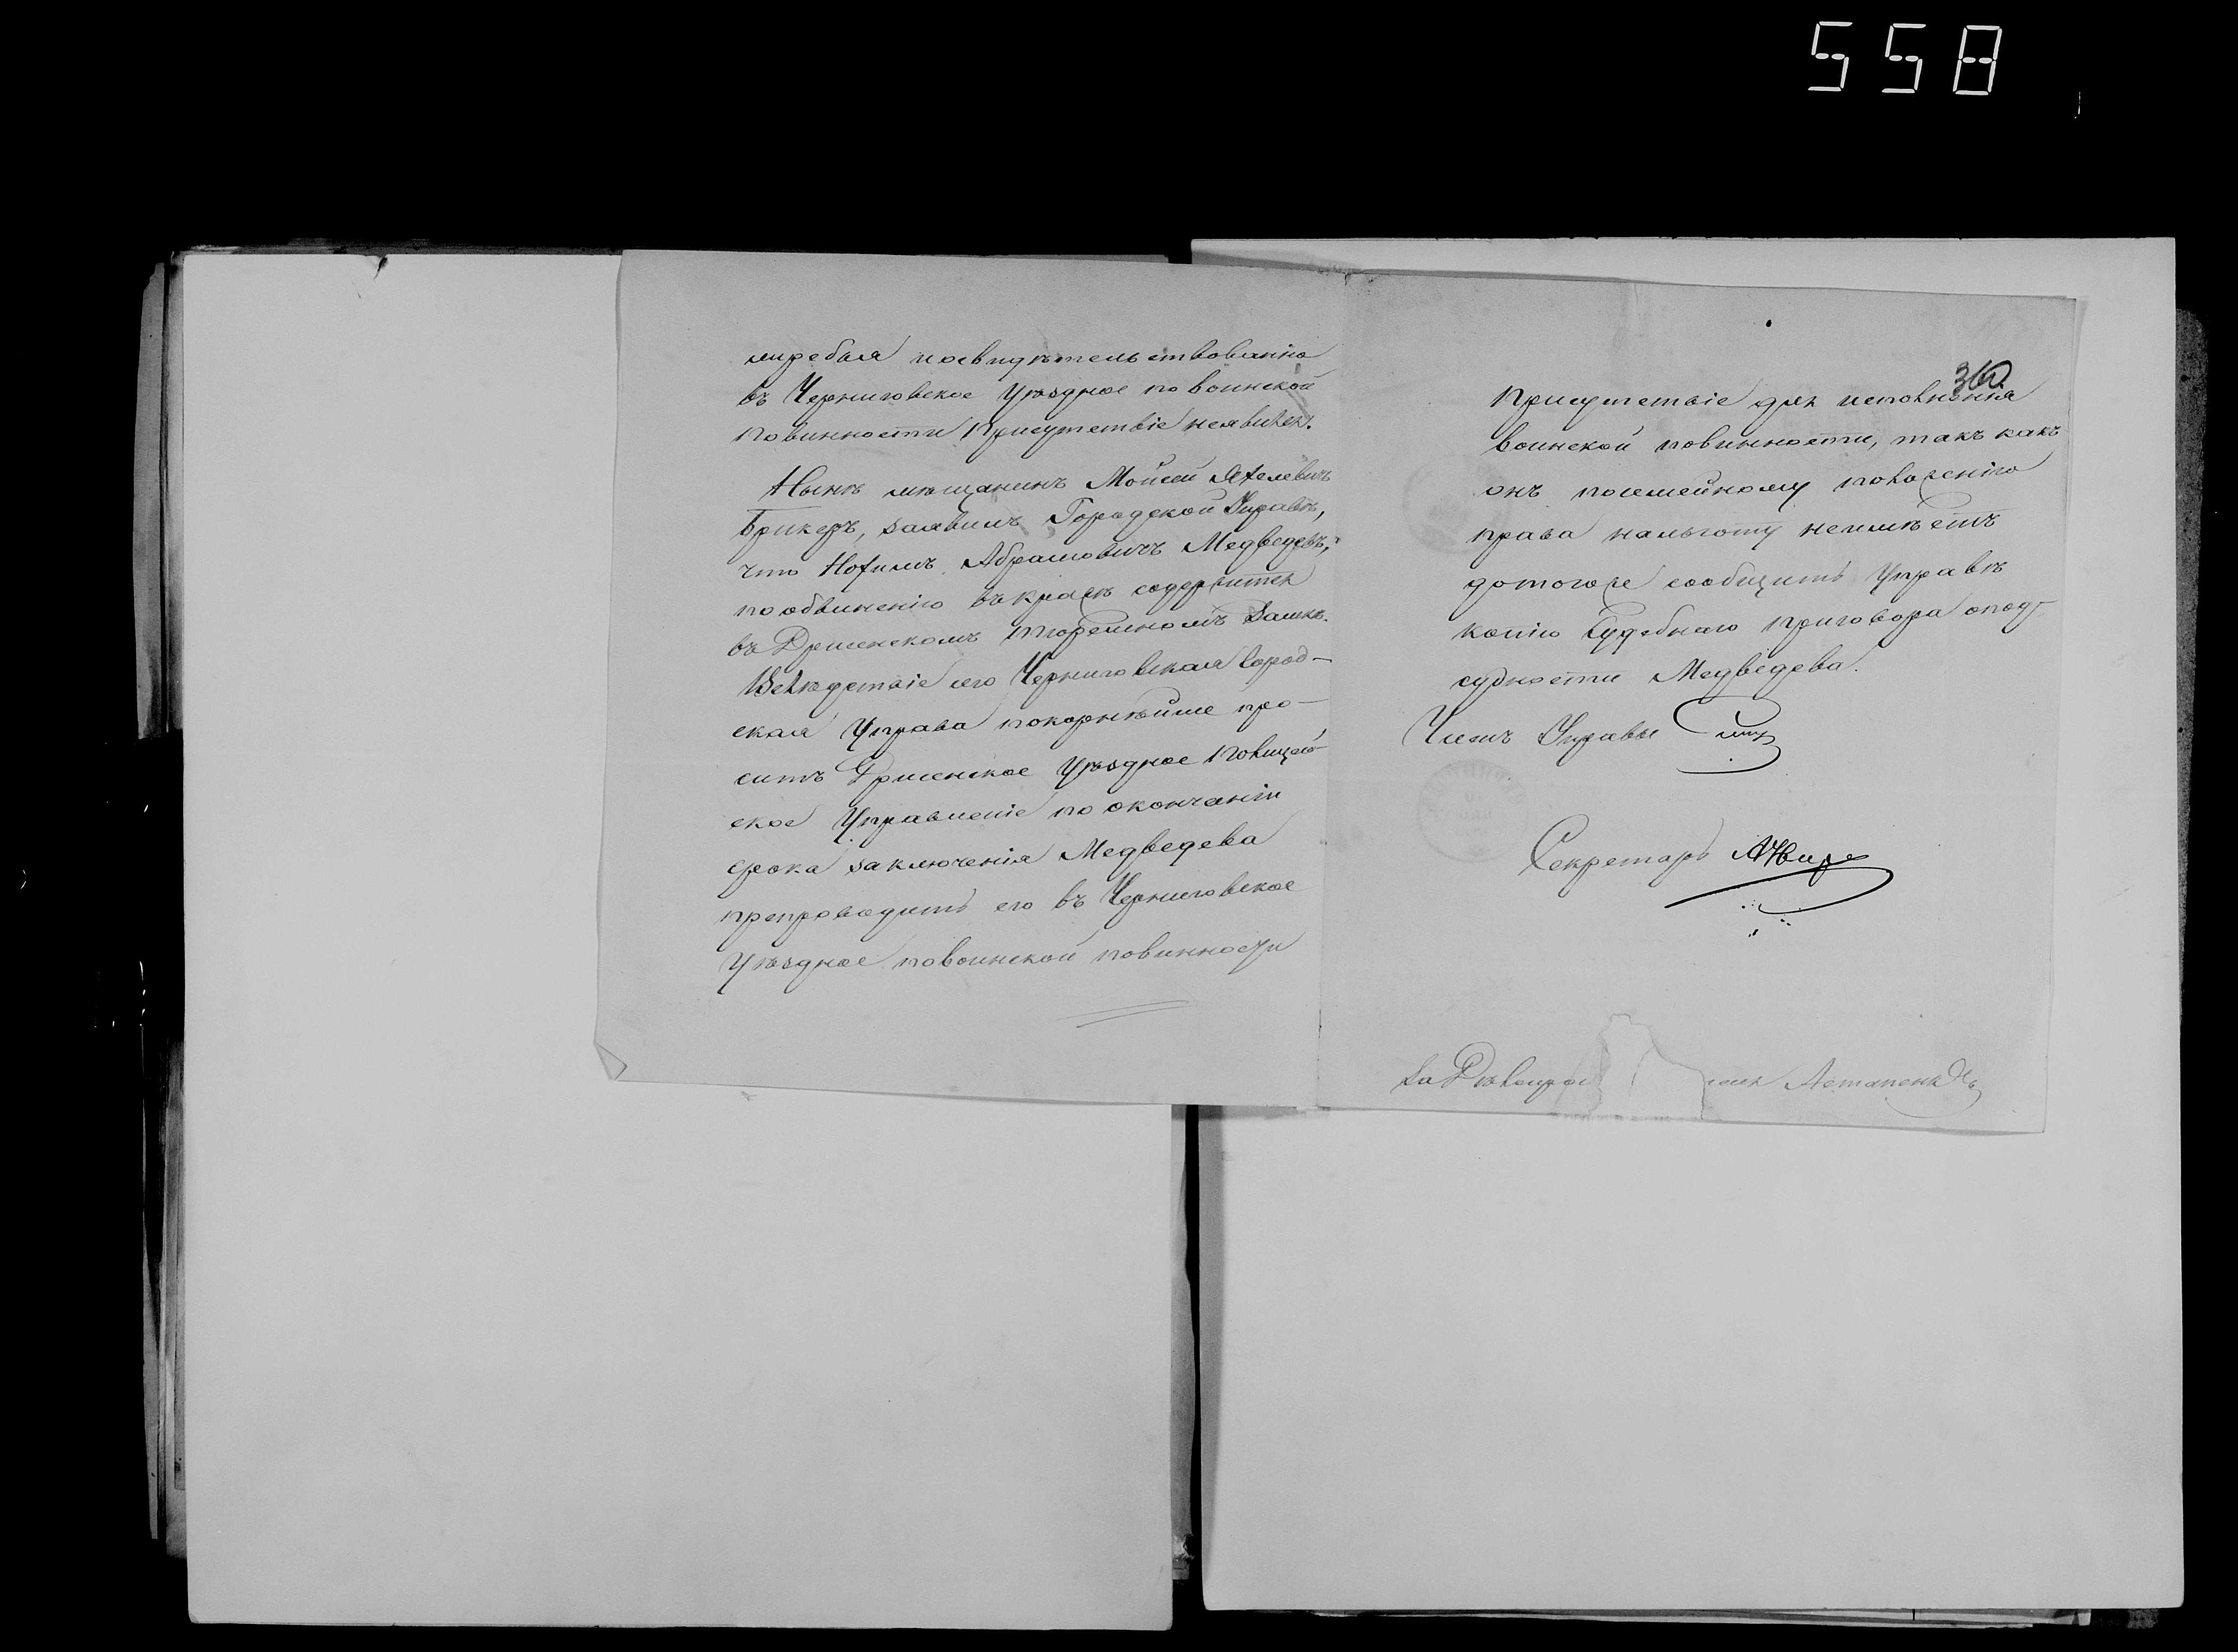 558
жребья и освидѣтельствованію
въ Черниговское Уѣздное по воинской
повинности Присутствіе неявился.
Нынѣ мѣщанинъ Мойсей
Брикеръ, заявилъ Городской Управѣ,
что Нохимъ Абрамовичъ Медведевъ,
по обвиненію въ кражѣ содержится
въ Дрисенскомъ тюремномъ Замкѣ.
Вслѣдствіе сего Черниговская Город-
ская Управа покорнѣйше про-
ситъ Дрисенское Уѣздное Полицей-
ское Управленіе по окончаніи
срока заключенія Медведева
препроводить его въ Черниговское
Уѣздное по воинской повинности
360
Присутствіе для исполненія
воинской повинности, такъ какъ
онъ посемейному положенію
права нальготу неимѣетъ
дотогоже сообщить Управѣ
копію Судебнаго приговора опод-
судности Медведева.
Членъ Управы
Секретарь
За Дѣлопрои